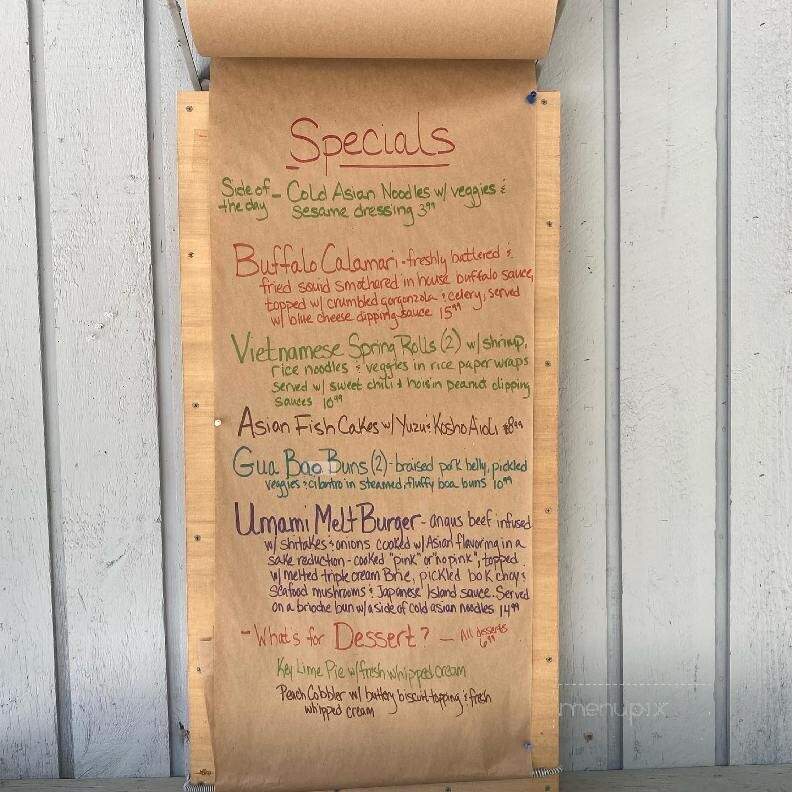 Specials
Side of - Cold Asian Noodles w/ veggies &
the day sesame dressing 3.99
Buffalo Calamari - freshly battered &
fried squid smothared in house buffalo sauce,
topped w/ crumbled gorgonzola & celery, served
w/ blue cheese dipping sauce 15.99
Vietnamese Spring Rolls (2) w/ shrimp,
rice noodles & veggies in rice paper wraps
served w/ sweet chili & hoisin peanut dipping
sauces 10.99
Asian Fish Cakes w/ Yuzu & Kosho Aioli $8.99
Gua Bao Buns (2) - braised pork belly, pickled
veggies & cilantro in steamed, fluffy boa buns 10.99
Umami Melt Burger - angus beef infused
w/ shitakes & onions cooked w/ Asian flavoring in a
sake reduction - cooked "pink" or "no pink", topped
w/ melted triple cream Brie, pickled bok choy &
seafood mushrooms & Japanese Island sauce. Served
on a brioche bun w/ a side of cold asian noodles 14.99
- What's for Dessert? - All desserts
6.99
Key Lime Pie w/ fresh whipped cream
Peach Cobbler w/ buttery biscuit topping & fresh
whipped cream
menupix